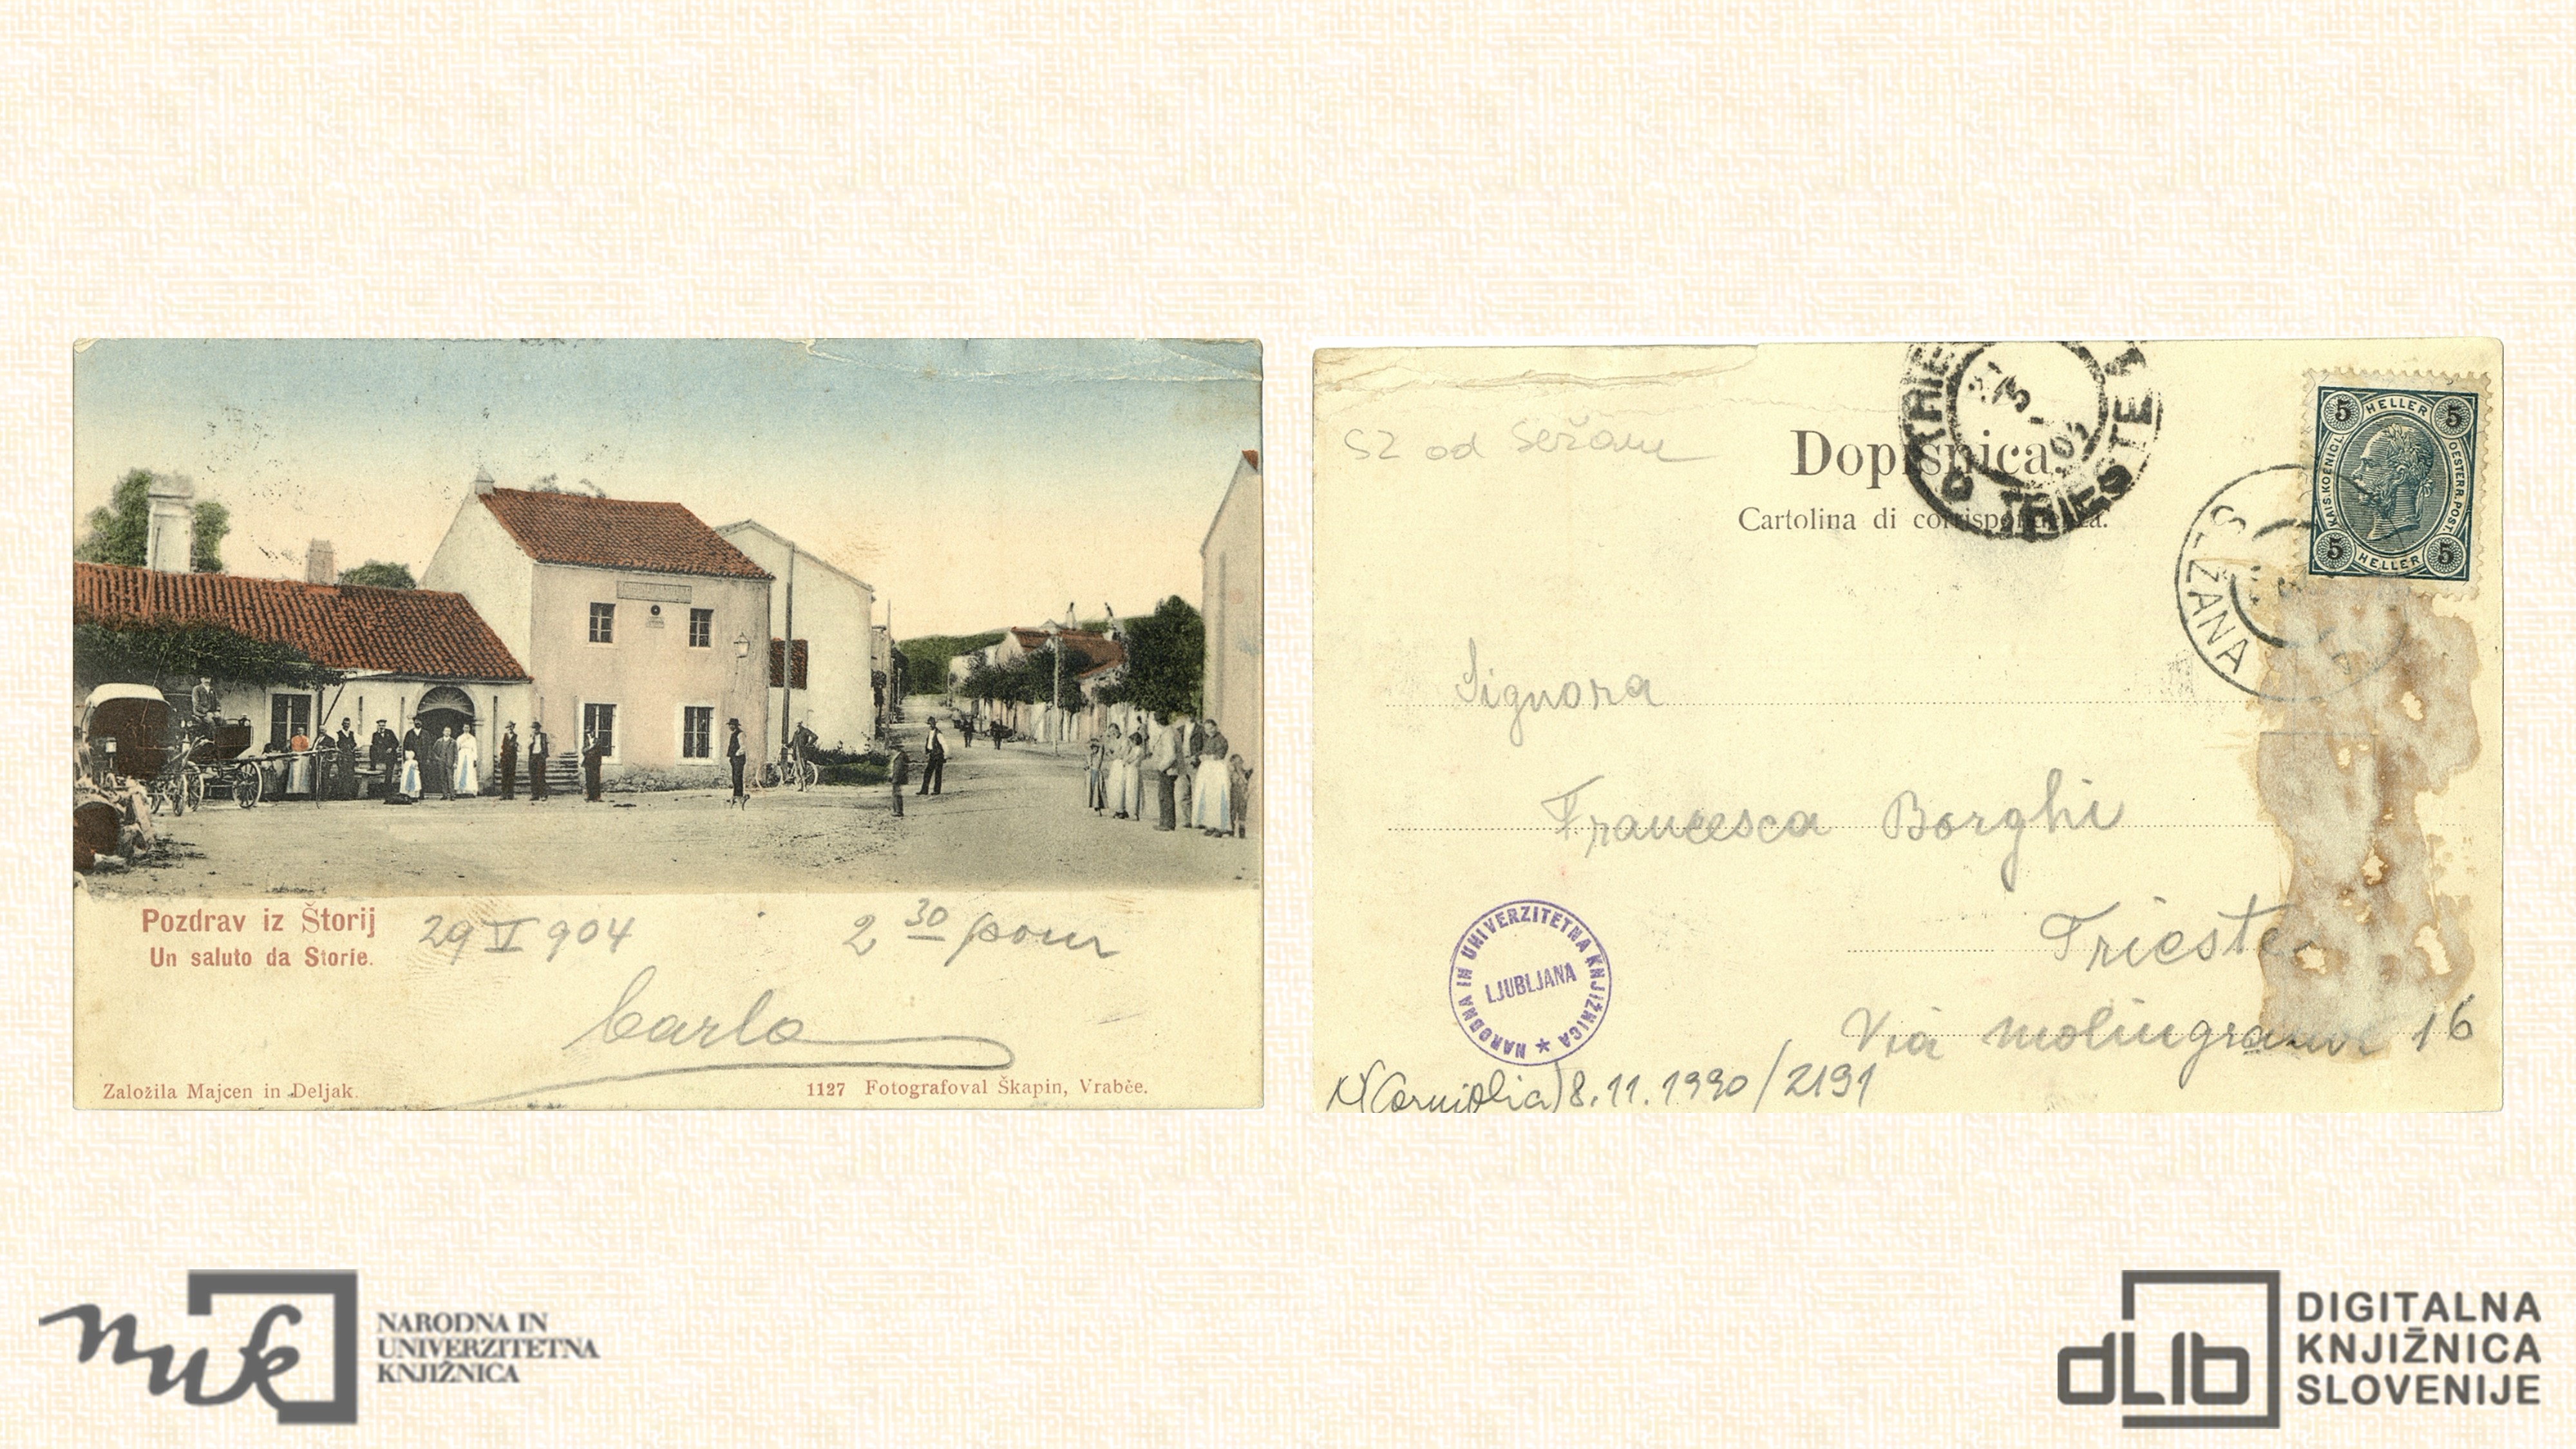 Pozdrav iz Štorij
Un saluto da Storie.
29 V 904
2 30 pom
Carlo
Založila Majcen in Deljak.
1127 Fotografoval Škapin, Vrabče.
SZ od Sežane
Dopisnica
Cartolina di corrispondenza.
TRIESTE
TRIESTE
5 HELLER 5
KAIS. KOENIGL. OESTERR. POST.
5 HELLER 5
SEŽANA
Signora
Francesca Borghi
Trieste
Via molingrande 16
NARODNA IN UNIVERZITETNA KNJIŽNICA
LJUBLJANA
8.11.1990/2191
nuk
NARODNA IN
UNIVERZITETNA
KNJIŽNICA
dLib
DIGITALNA
KNJIŽNICA
SLOVENIJE